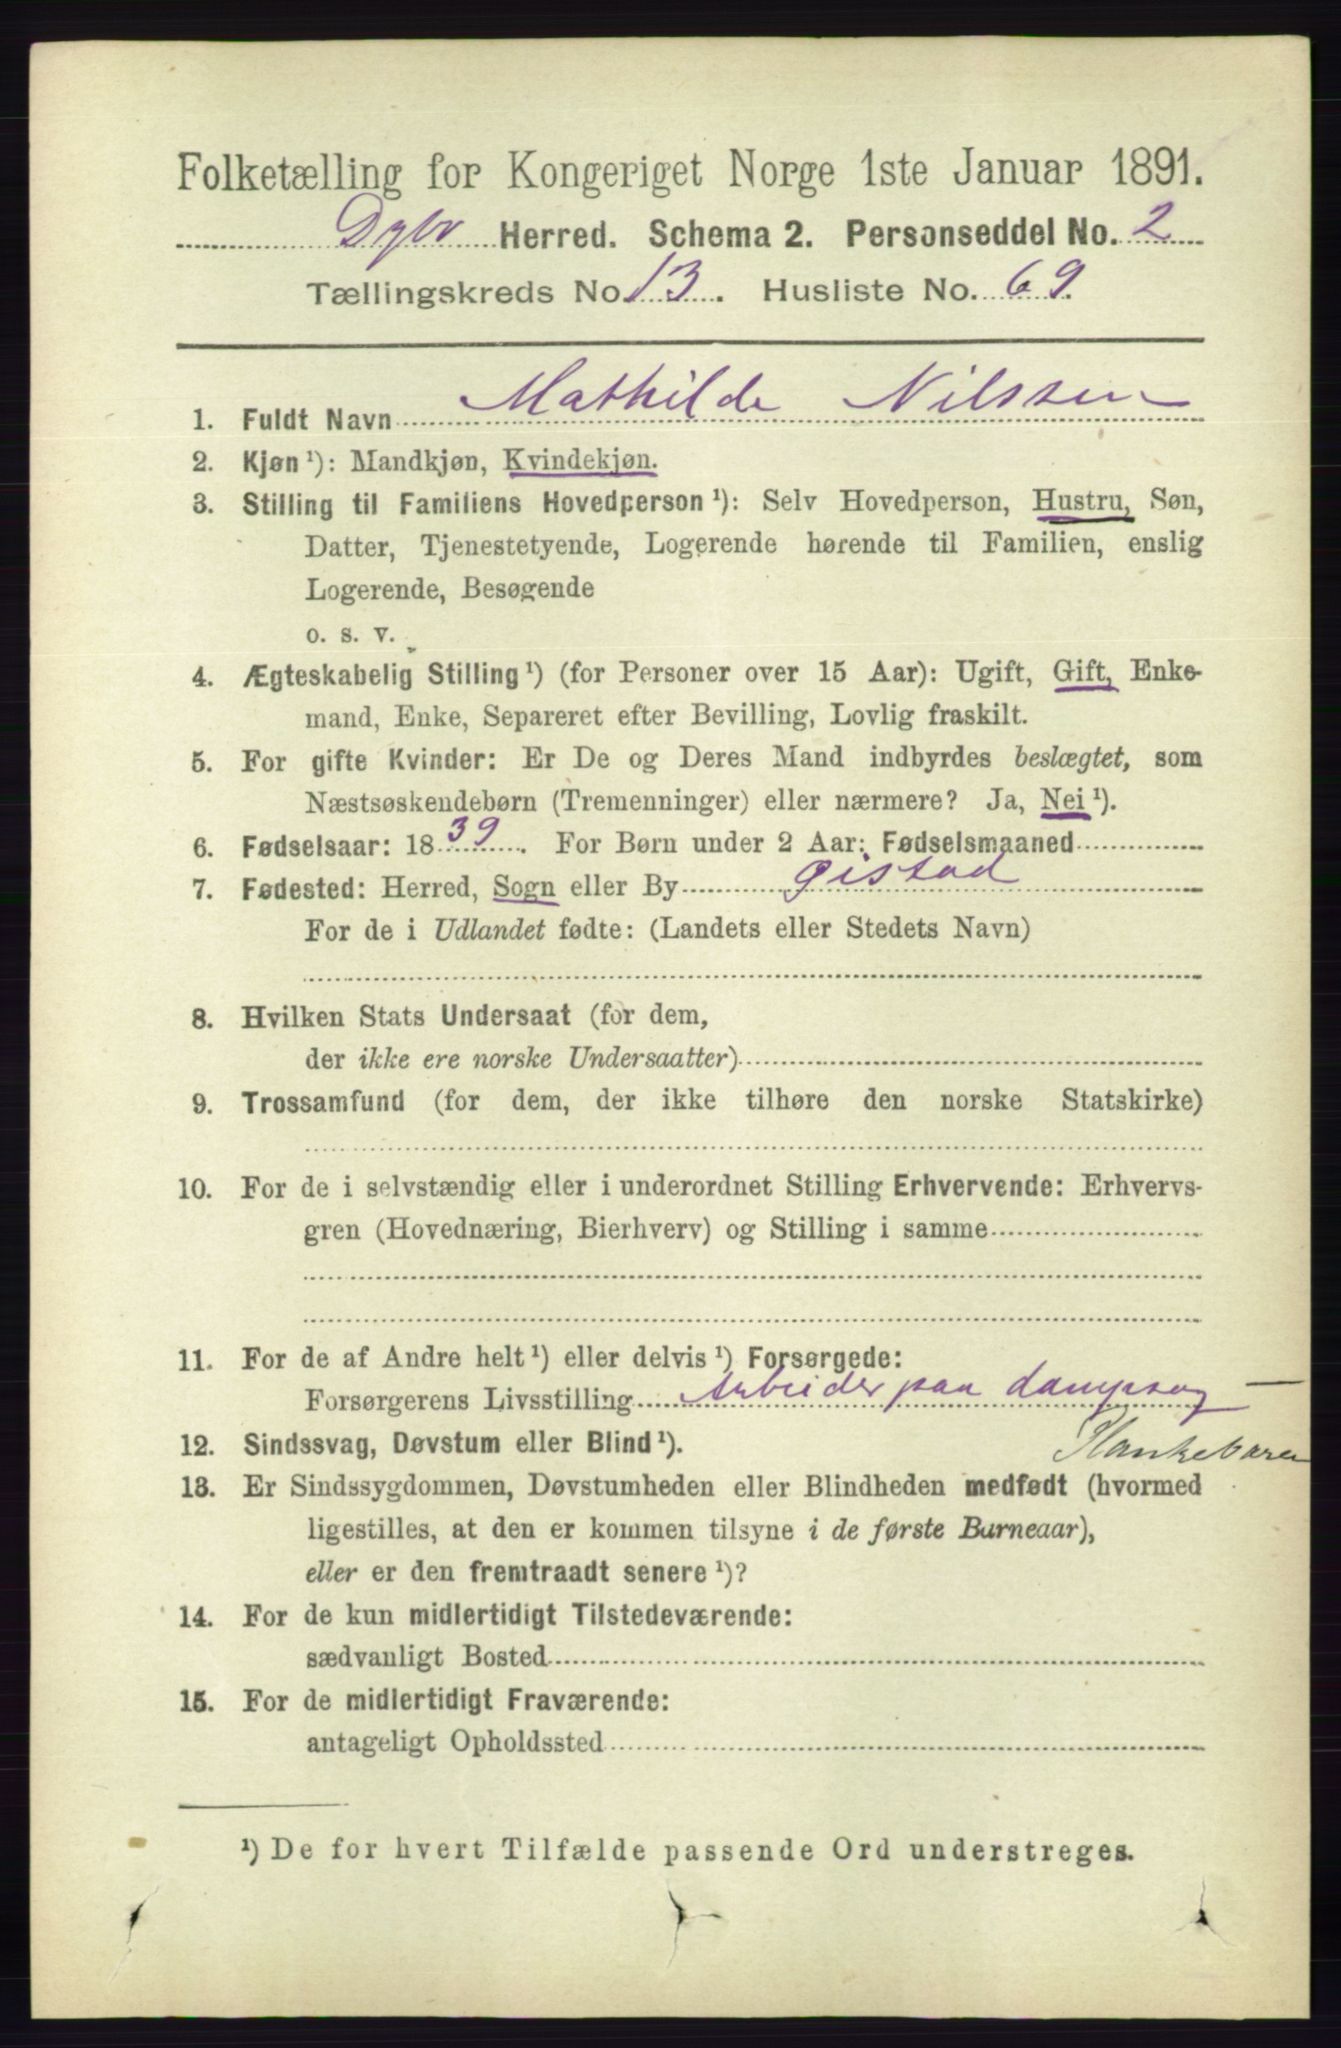 Folketælling for Kongeriget Norge 1ste Januar 1891.
Dybv Herred. Schema 2. Personseddel No. 2
Tællingskreds No. 13. Husliste No. 69.
1. Fuldt Navn Mathilde Nilssen
2. Kjøn ¹): Mandkjøn, Kvindekjøn.
3. Stilling til Familiens Hovedperson ¹): Selv Hovedperson, Hustru, Søn,
Datter, Tjenestetyende, Logerende hørende til Familien, enslig
Logerende, Besøgende
o. s. v.
4. Ægteskabelig Stilling ¹) (for Personer over 15 Aar): Ugift, Gift, Enke-
mand, Enke, Separeret efter Bevilling, Lovlig fraskilt.
5. For gifte Kvinder: Er De og Deres Mand indbyrdes beslægtet, som
Næstsøskendebørn (Tremenninger) eller nærmere? Ja, Nei ¹).
6. Fødselsaar: 1839. For Børn under 2 Aar: Fødselsmaaned
7. Fødested: Herred, Sogn eller By Gistad
For de i Udlandet fødte: (Landets eller Stedets Navn)
8. Hvilken Stats Undersaat (for dem,
der ikke ere norske Undersaatter)
9. Trossamfund (for dem, der ikke tilhøre den norske Statskirke)
10. For de i selvstændig eller i underordnet Stilling Erhvervende: Erhvervs-
gren (Hovednæring, Bierhverv) og Stilling i samme
11. For de af Andre helt ¹) eller delvis ¹) Forsørgede:
Forsørgerens Livsstilling Arbeider paa dampsag —
Plankebærer
12. Sindssvag, Døvstum eller Blind ¹).
13. Er Sindssygdommen, Døvstumheden eller Blindheden medfødt (hvormed
ligestilles, at den er kommen tilsyne i de første Barneaar),
eller er den fremtraadt senere ¹)?
14. For de kun midlertidigt Tilstedeværende:
sædvanligt Bosted
15. For de midlertidigt Fraværende:
antageligt Opholdssted
¹) De for hvert Tilfælde passende Ord understreges.